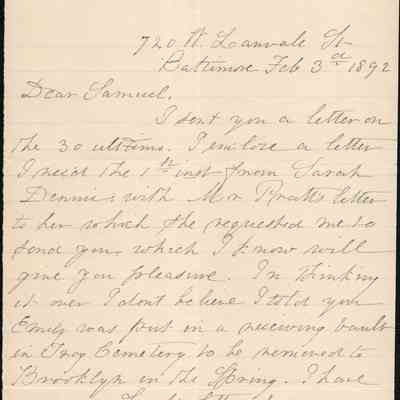 720 W. Lanvale St
Baltimore Feb 3d 1892
Dear Samuel.
I sent you a letter on
the 30 ultimo. I enclose a letter
I recd the 1st inst from Sarah
Dennis with Mr Pratts letter
to her which she requested me to
send you, which I know will
give you pleasure. In thinking
it over I dont believe I told you
Emily was put in a receiving vault
in Troy Cemetery to be removed to
Brooklyn in the Spring. I have